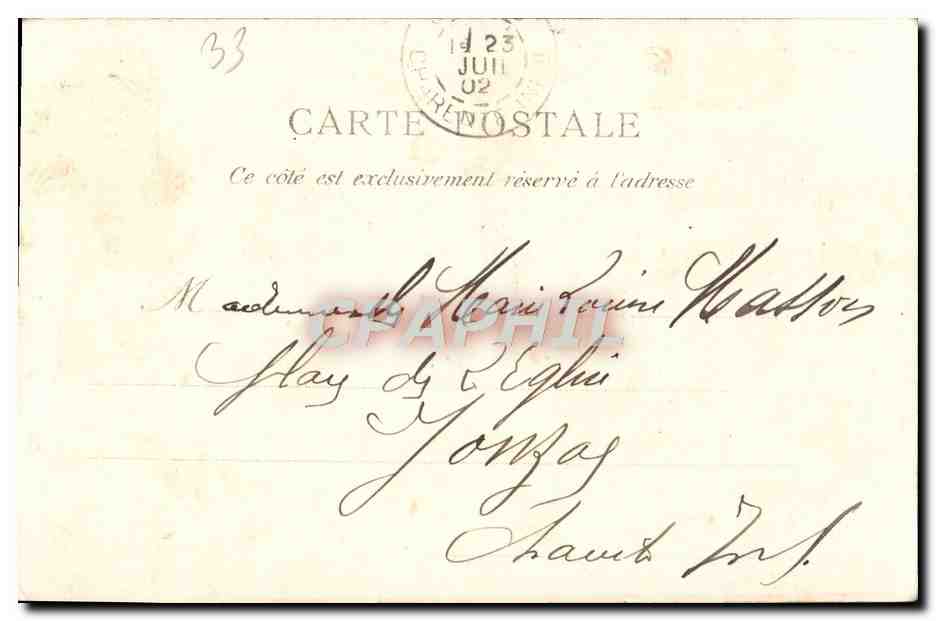 33
23
JUIL
02
CHARENTE INF
CARTE POSTALE
Ce côté est exclusivement réservé à l'adresse
Mademoiselle Marie Louise Masson
Place de L'Eglise
Jonzac
Charente Inf.
CPAPHIL